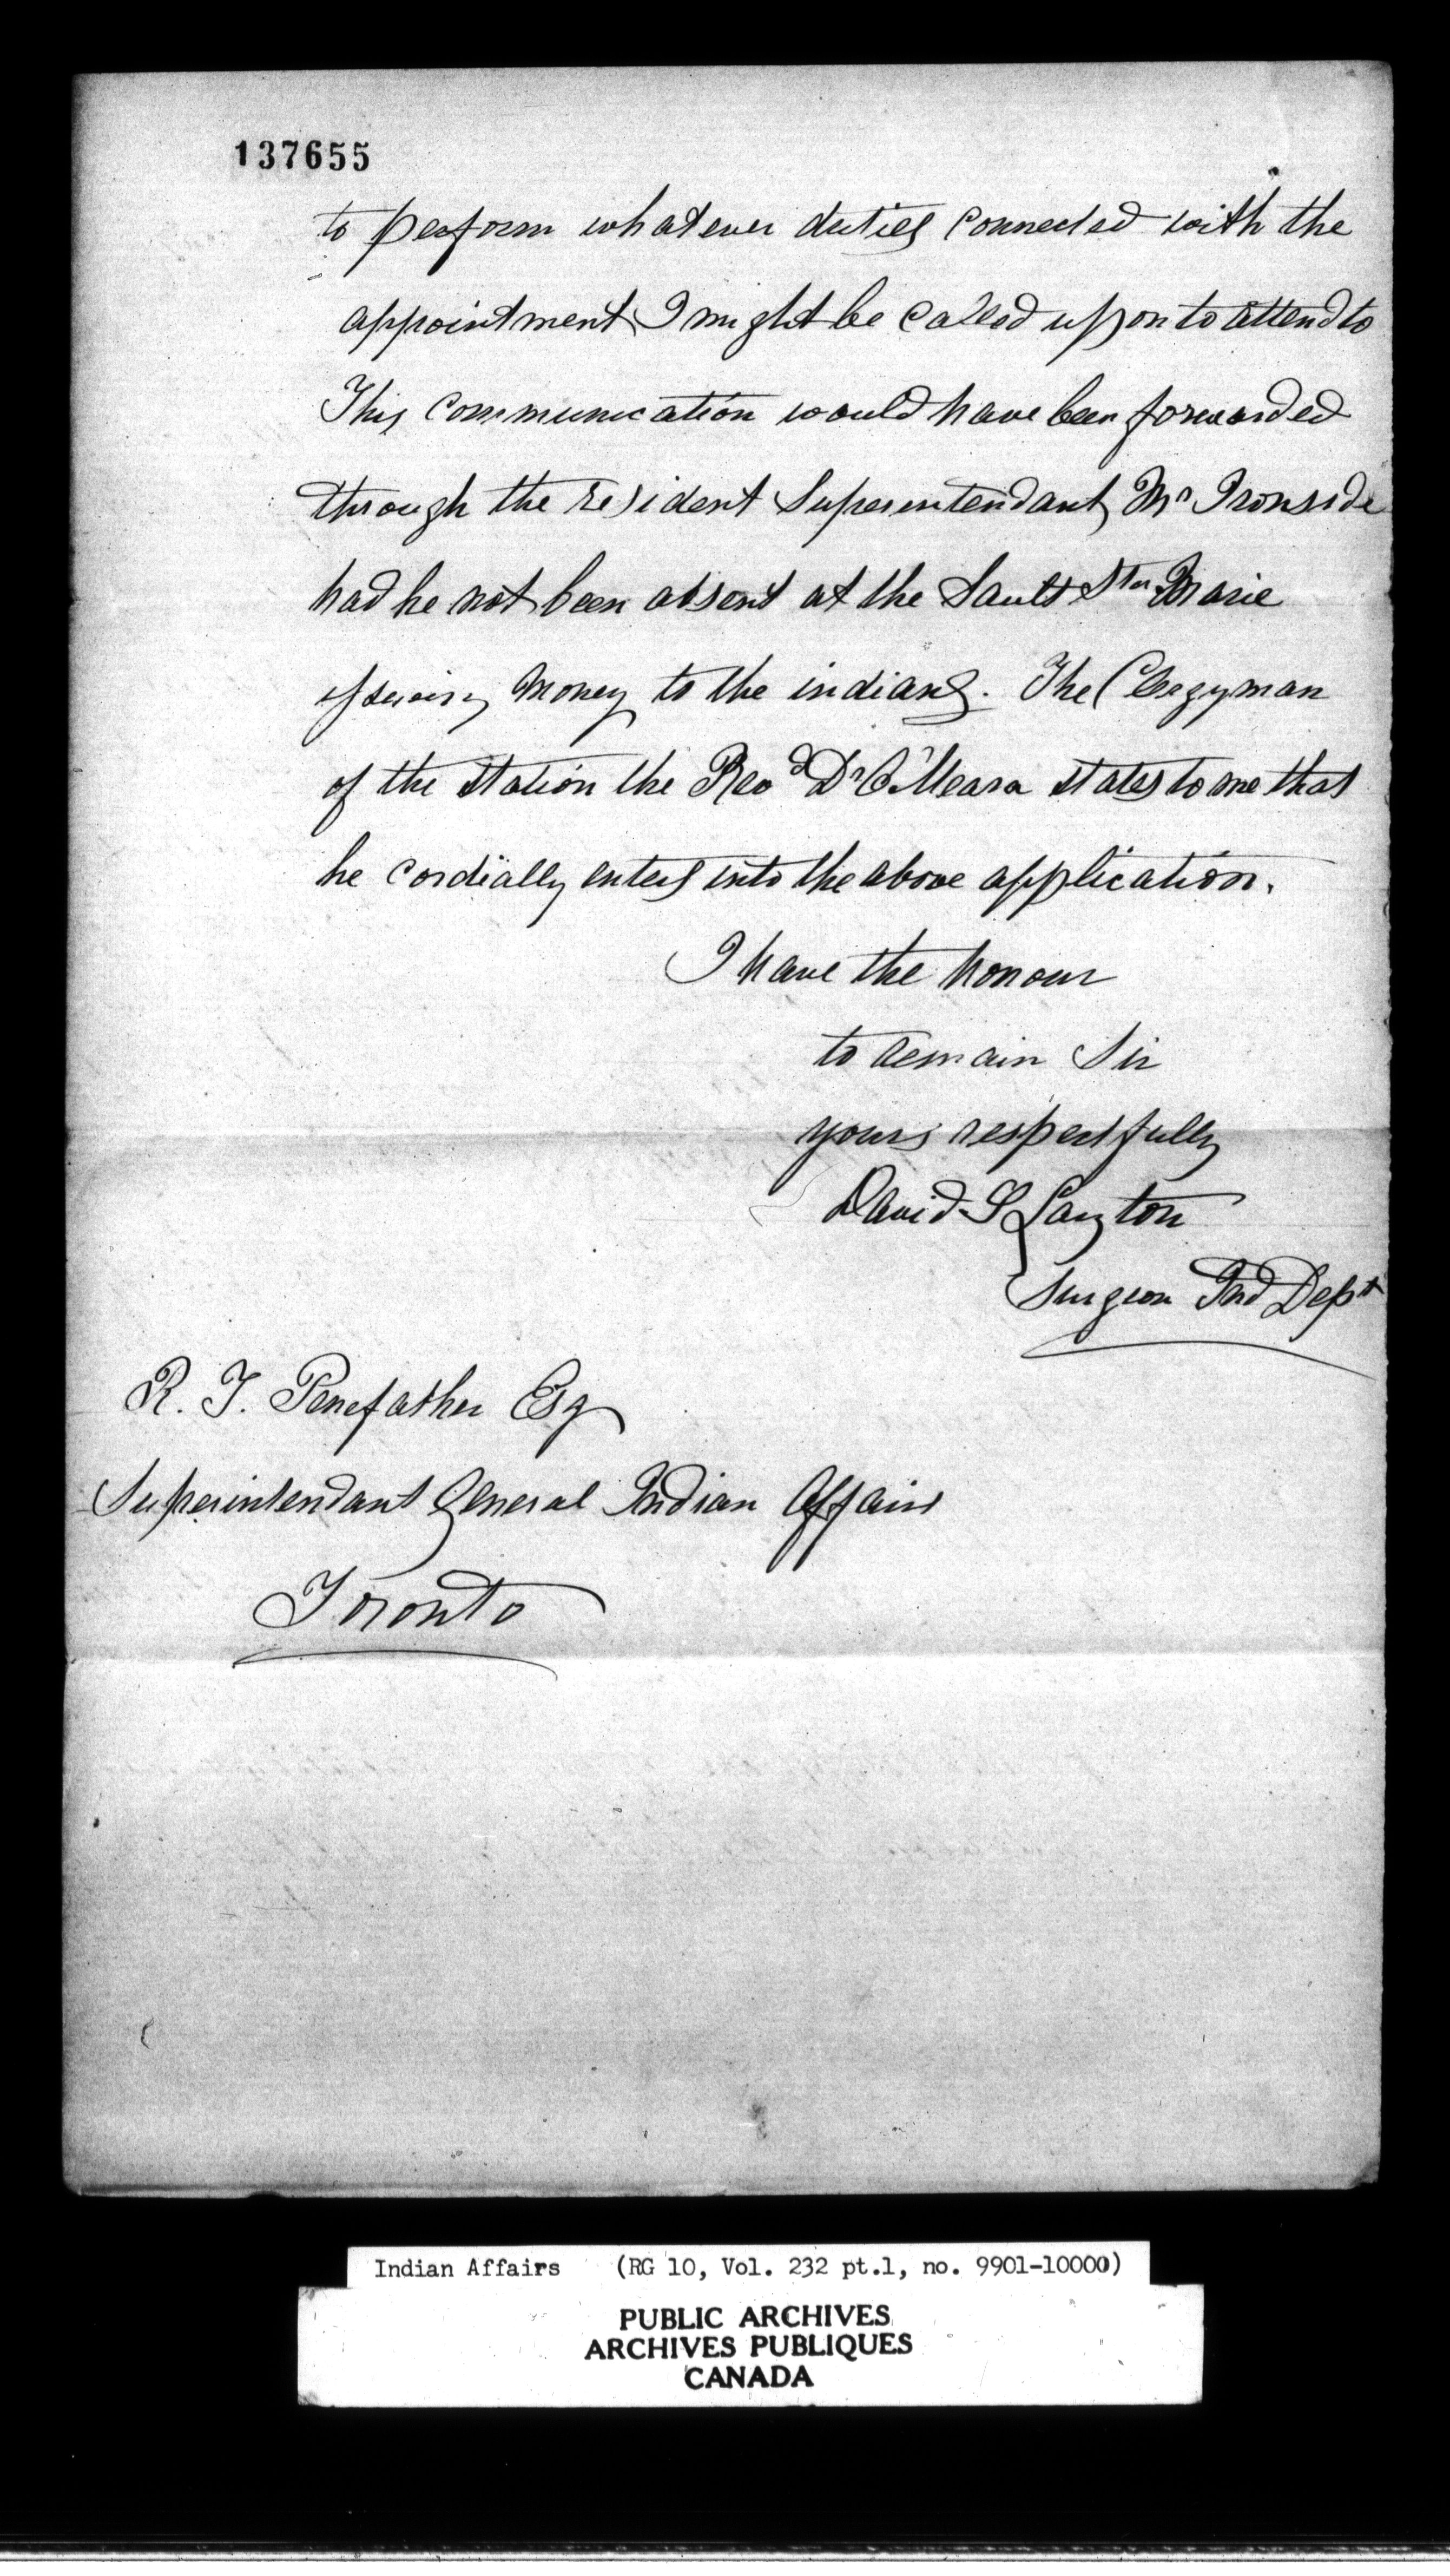 137655
to perform whatever duties connected with the
appointment I might be called upon to attend to
This communication would have been forwarded
through the resident Superentendant, Mr Ironside
had he not been absent at the Sault Ste Marie
issuing Money to the indians. The Clergyman
of the Station the Revd Dr O'Meara states to me that
he cordially enters into the above application.
I have the honour
to remain Sir
yours respectfully
David S Layton
Surgeon Ind Dept
R. T. Penefather Esq
Superintendant General Indian Affairs
Toronto
Indian Affairs (RG 10, Vol. 232 pt.1, no. 9901-10000)
PUBLIC ARCHIVES
ARCHIVES PUBLIQUES
CANADA